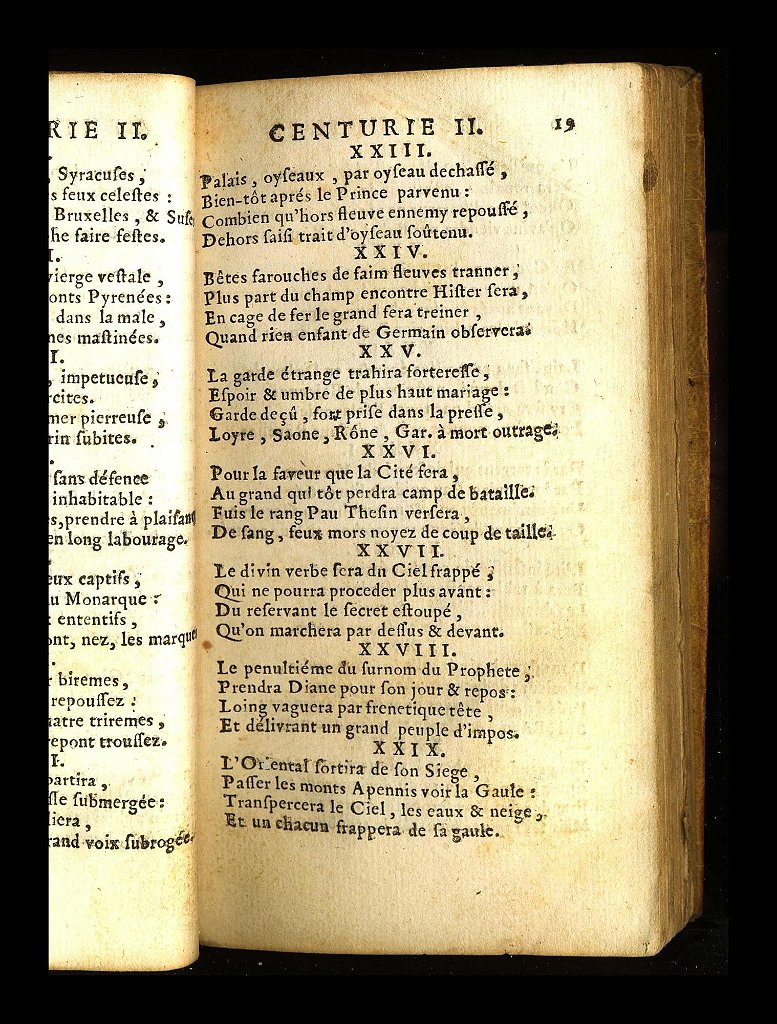 RIE II.
Syracuſes,
s feux celeſtes :
Bruxelles, & Suſe
he faire feſtes.
I.
vierge veſtale,
onts Pyrenées:
dans la male,
nes maſtinées.
I.
, impetueuſe,
rcites.
mer pierreuſe,
rin ſubites.
ſans défence
inhabitable :
s, prendre à plaiſant
en long labourage.
eux captifs,
u Monarque :
ententifs,
ont, nez, les marque
biremes,
repouſſez :
uatre triremes,
repont trouſſez.
I.
partira,
ſſe ſubmergée:
iera,
rand voix ſubrogée.
CENTURIE II. 19
XXIII.
Palais, oyſeaux, par oyſeau dechaſſé,
Bien-tôt aprés le Prince parvenu :
Combien qu'hors fleuve ennemy repouſſé,
Dehors ſaiſi trait d'oyſeau ſoûtenu.
XXIV.
Bêtes farouches de faim fleuves tranner,
Plus part du champ encontre Hiſter ſera,
En cage de fer le grand ſera treiner,
Quand rien enfant de Germain obſervera.
XXV.
La garde étrange trahira fortereſſe,
Eſpoir & umbre de plus haut mariage :
Garde deçû, fort priſe dans la preſſe,
Loyre, Saone, Rône, Gar. à mort outrage.
XXVI.
Pour la faveur que la Cité fera,
Au grand qui tôt perdra camp de bataille.
Fuis le rang Pau Theſin verſera,
De ſang, feux mors noyez de coup de taille.
XXVII.
Le divin verbe ſera dn Ciel frappé,
Qui ne pourra proceder plus avant :
Du reſervant le ſecret eſtoupé,
Qu'on marchera par deſſus & devant.
XXVIII.
Le penultiéme du ſurnom du Prophete,
Prendra Diane pour ſon jour & repos :
Loing vaguera par frenetique tête,
Et délivrant un grand peuple d'impos.
XXIX.
L'Oriental ſortira de ſon Siege,
Paſſer les monts Apennis voir la Gaule :
Tranſpercera le Ciel, les eaux & neige,
Et un chacun frappera de ſa gaule.